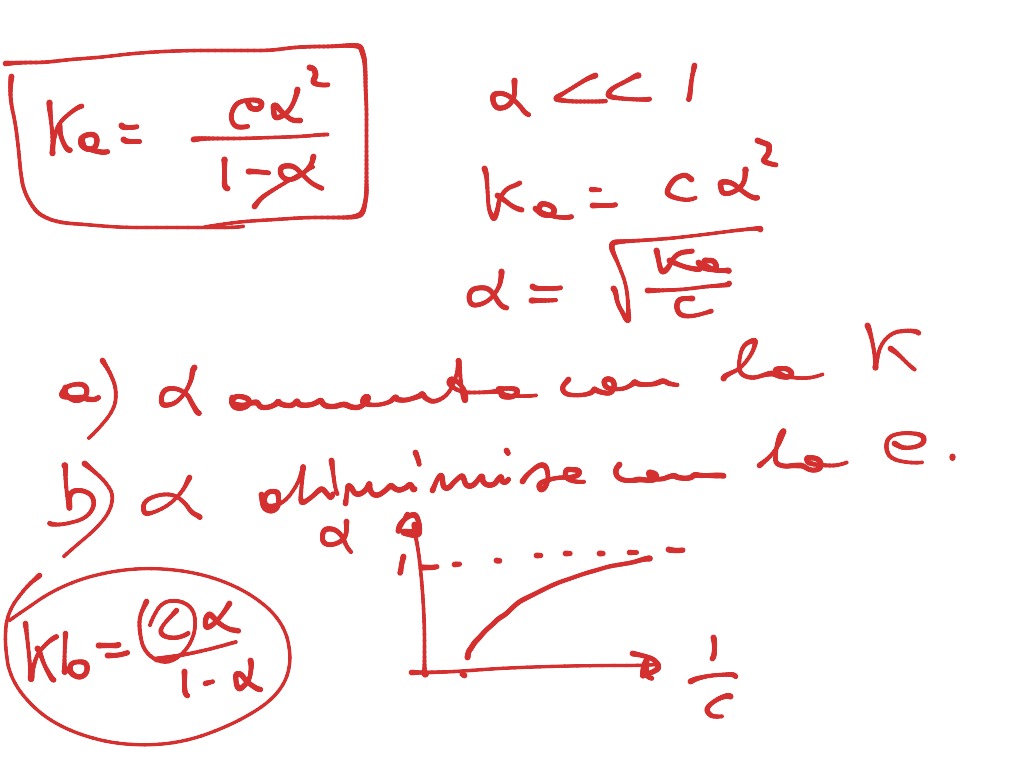 Ka = cα² / (1-α)
α << 1
Ka = cα²
α = √(Ka/c)
a) α aumenta con la K
b) α disminuye con la c.
α
1
Kb = cα / (1-α)
1/c